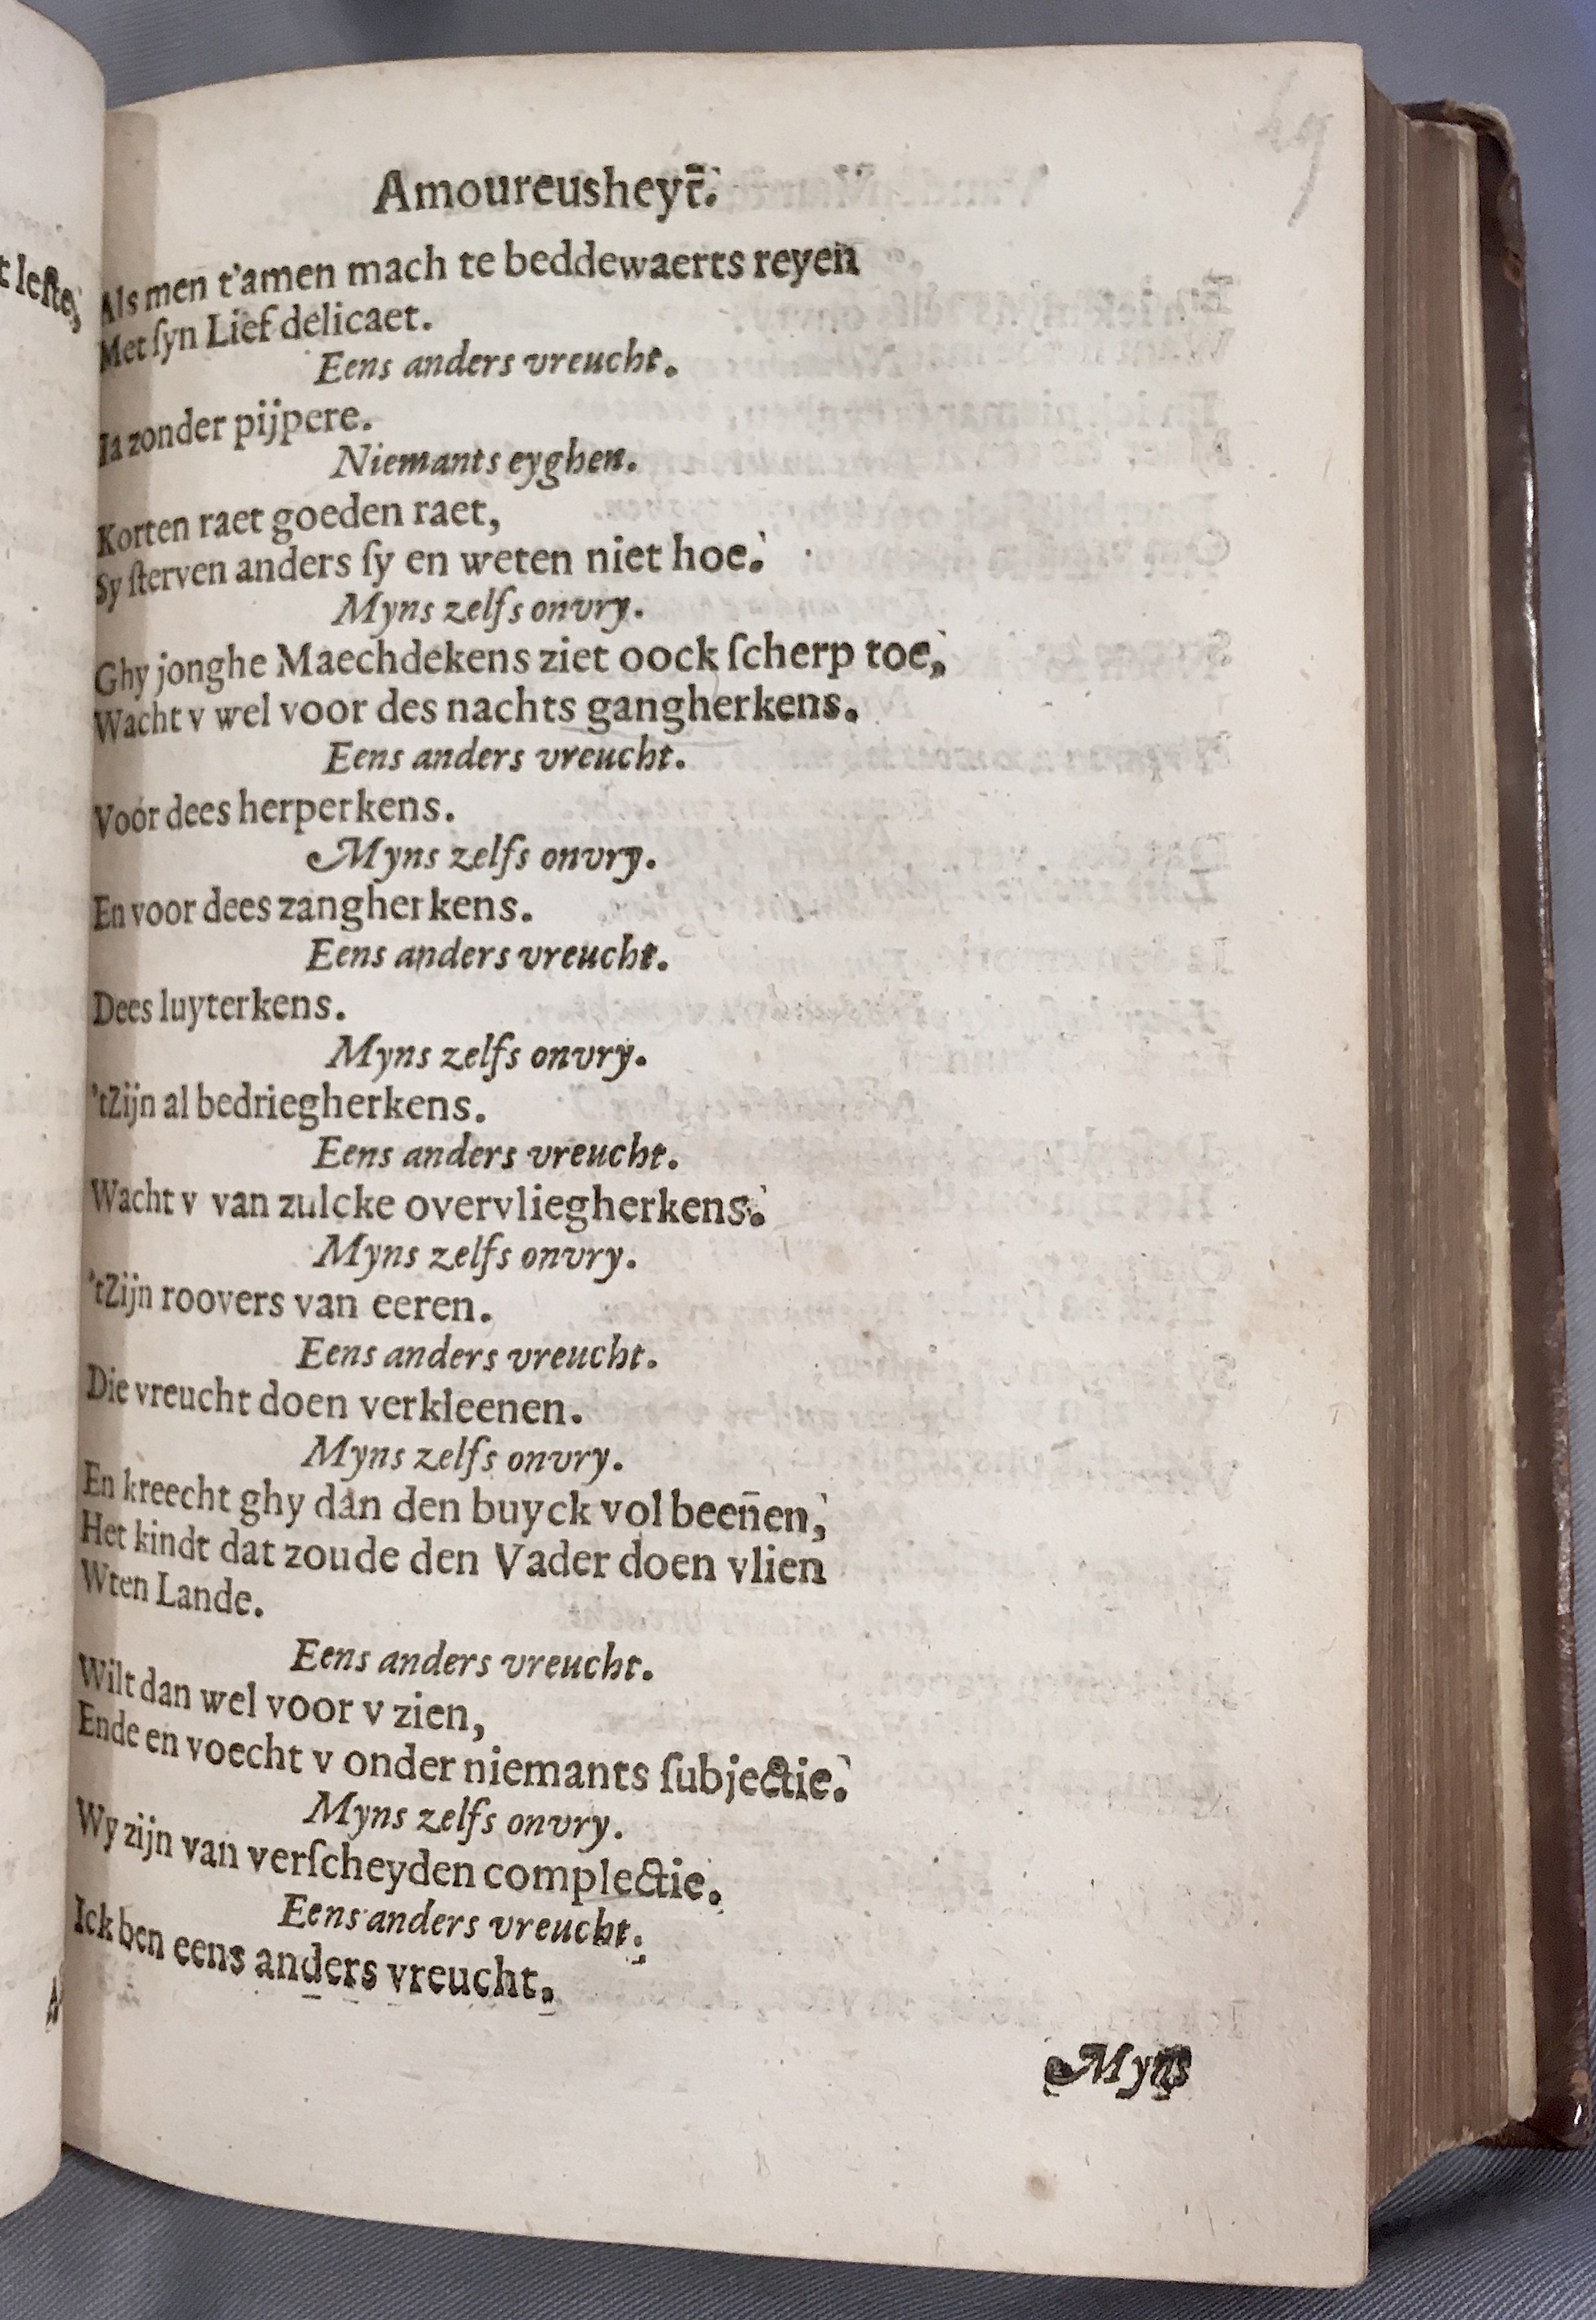 Amoureusheyt.
t leste,
Als men t'amen mach te beddewaerts reyen
Met ſyn Lief delicaet.
Eens anders vreucht.
Ia zonder pijpere.
Niemants eyghen.
Korten raet goeden raet,
Sy ſterven anders ſy en weten niet hoe.
Myns zelfs onvry.
Ghy jonghe Maechdekens ziet oock ſcherp toe,
Wacht v wel voor des nachts gangherkens.
Eens anders vreucht.
Voor dees herperkens.
Myns zelfs onvry.
En voor dees zangherkens.
Eens anders vreucht.
Dees luyterkens.
Myns zelfs onvry.
'tZijn al bedriegherkens.
Eens anders vreucht.
Wacht v van zulcke overvliegherkens.
Myns zelfs onvry.
'tZijn roovers van eeren.
Eens anders vreucht.
Die vreucht doen verkleenen.
Myns zelfs onvry.
En kreecht ghy dan den buyck vol beeñen,
Het kindt dat zoude den Vader doen vlien
Wten Lande.
Eens anders vreucht.
Wilt dan wel voor v zien,
Ende en voecht v onder niemants ſubjectie.
Myns zelfs onvry.
Wy zijn van verſcheyden complectie.
Eens anders vreucht.
Ick ben eens anders vreucht.
Myns